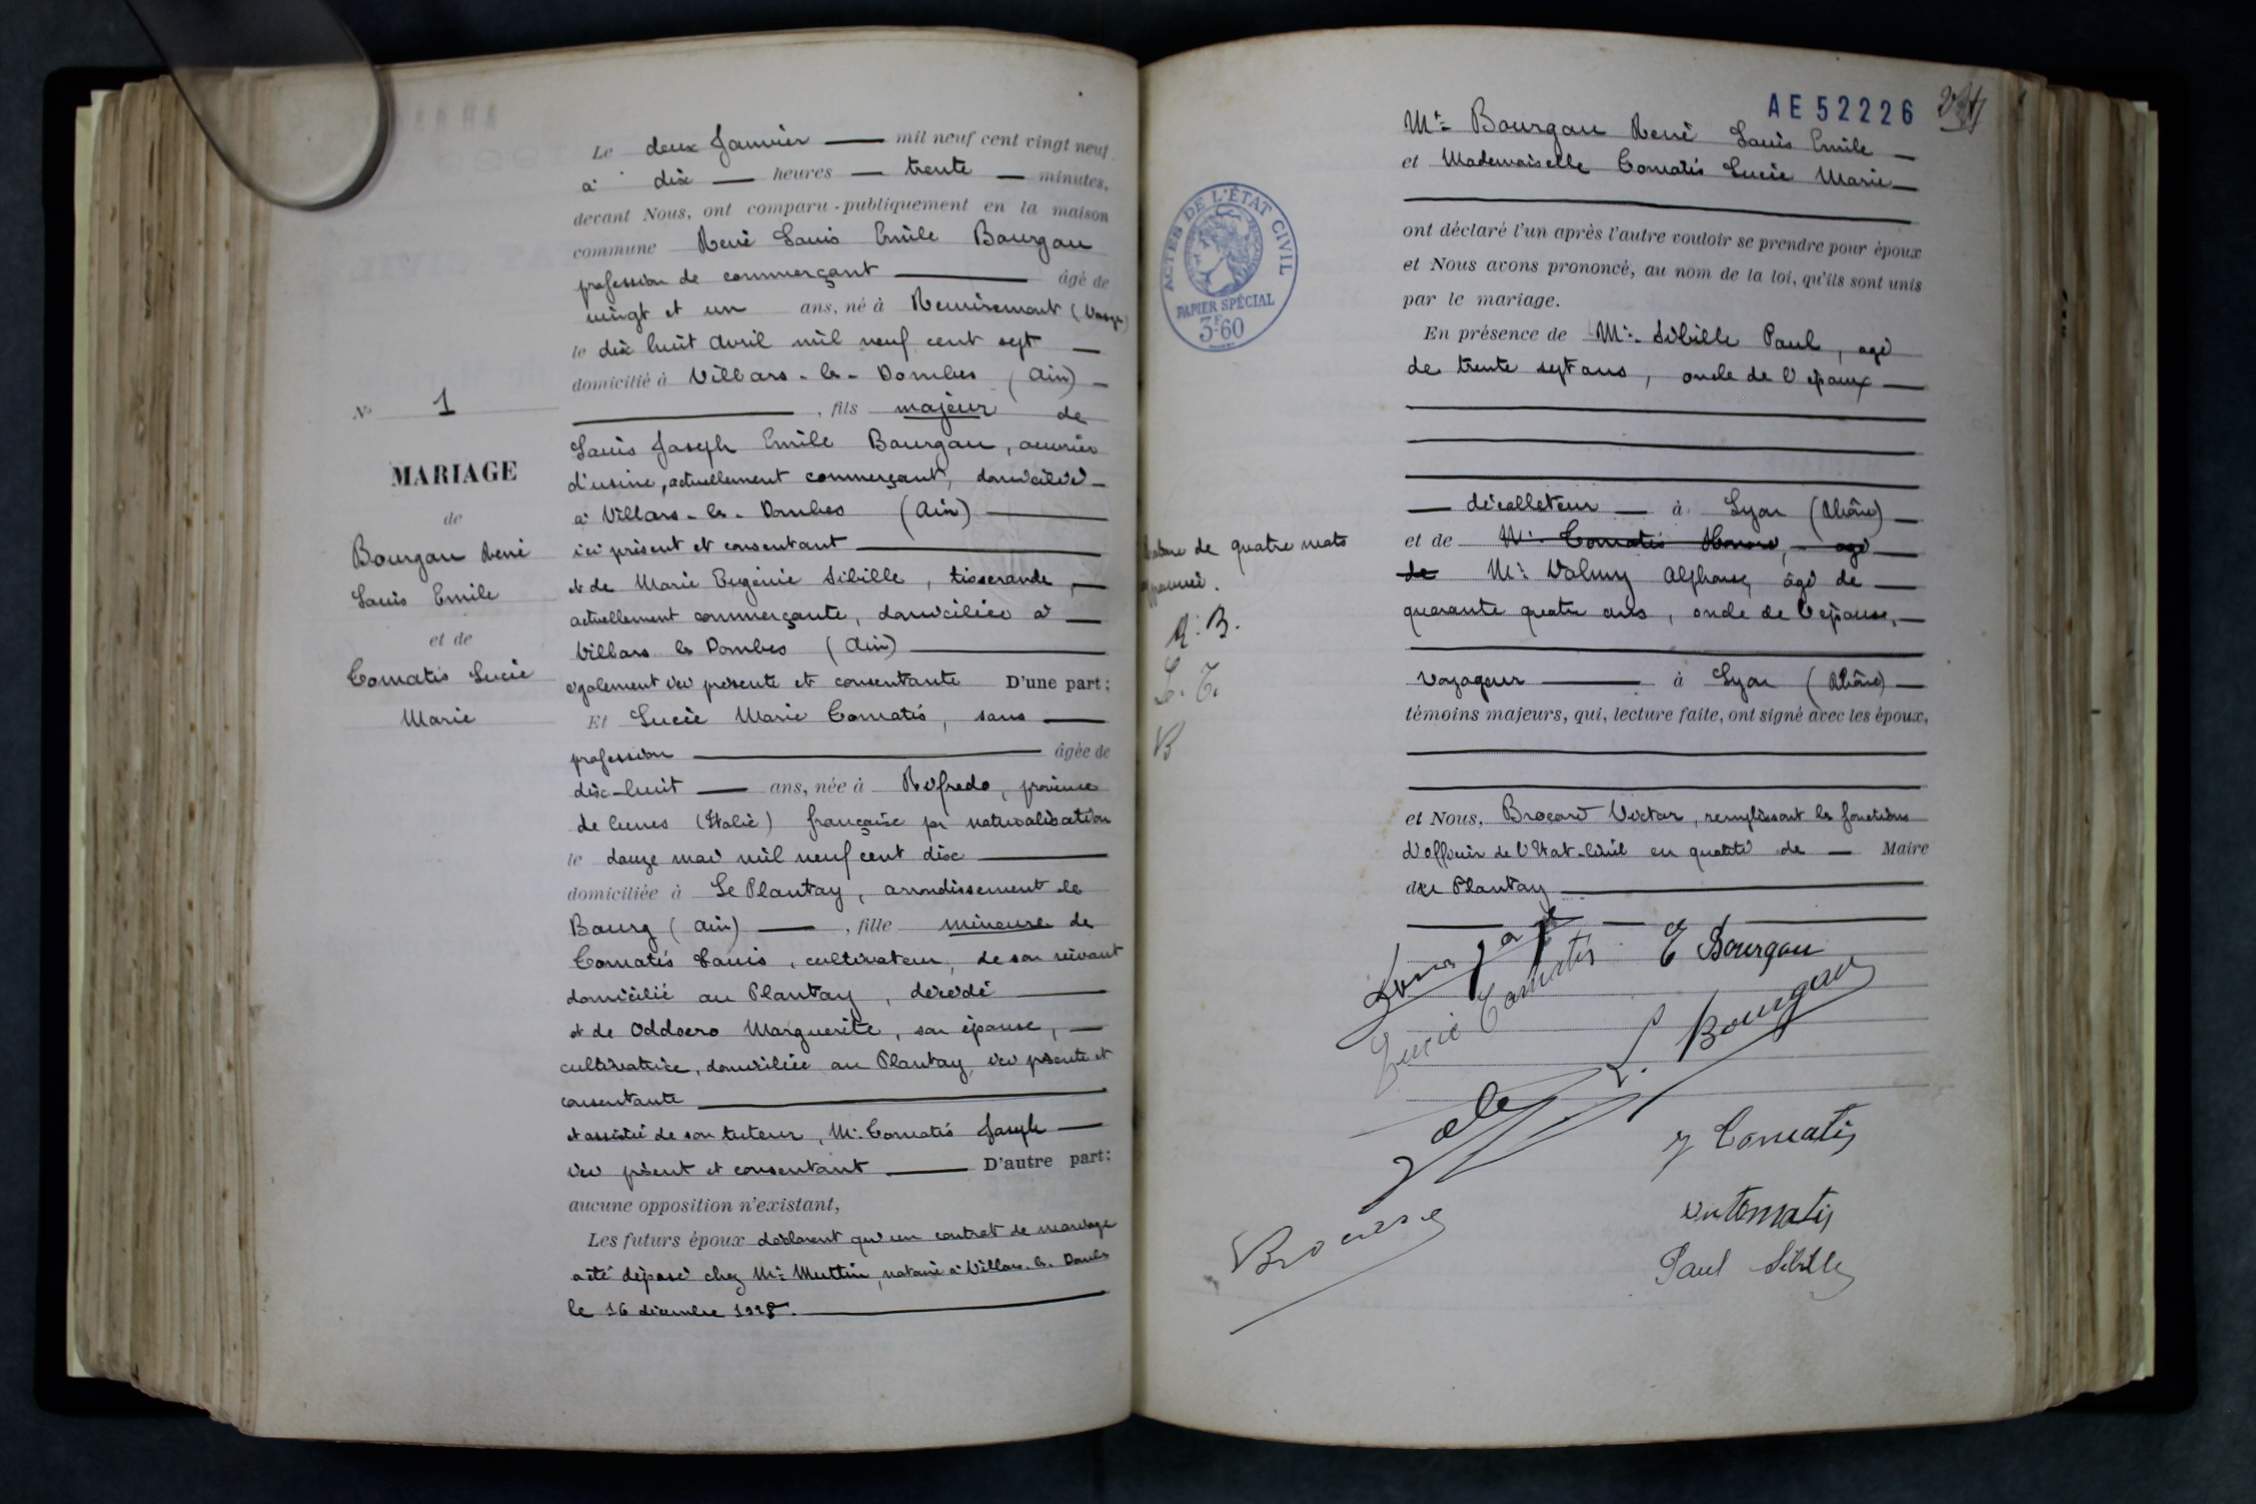 Le deux Janvier — mil neuf cent vingt neuf
à dix — heures — trente — minutes,
devant Nous, ont comparu publiquement en la maison
commune René Louis Emile Bourgau
profession de commerçant — âgé de
vingt et un ans, né à Remiremont (Vosges)
le dix huit Avril mil neuf cent sept —
domicilié à Villars-les-Dombes (Ain) —
—, fils majeur de
Louis Joseph Emile Bourgau, ouvrier
d'usine, actuellement commerçant, domicilié —
à Villars-les-Dombes (Ain) —
ici présent et consentant —
et de Marie Eugénie Sibille, tisserande, —
actuellement commerçante, domiciliée à —
Villars les Dombes (Ain) —
également ici présente et consentante D'une part:
Et Lucie Marie Comatis, sans —
profession — âgée de
dix-huit — ans, née à Rifredo, province
de Cuneo (Italie) française par naturalisation
le douze mai mil neuf cent dix —
domiciliée à Le Plantay, arrondissement de
Bourg (Ain) —, fille mineure de
Comatis Louis, cultivateur, de son vivant
domicilié au Plantay, décédé —
et de Oddoero Marguerite, son épouse, —
cultivatrice, domiciliée au Plantay, ici présente et
consentante —
et assistée de son tuteur, Mr. Comatis Joseph —
ici présent et consentant — D'autre part:
aucune opposition n'existant,
Les futurs époux déclarent qu'un contrat de mariage
a été déposé chez Me Muttin, notaire à Villars-les-Dombes
le 16 décembre 1928. —
No 1
MARIAGE
de
Bourgau René
Louis Emile
et de
Comatis Lucie
Marie
AE 52226
Mr Bourgau René Louis Emile —
et Mademoiselle Comatis Lucie Marie —
ont déclaré l'un après l'autre vouloir se prendre pour époux
et Nous avons prononcé, au nom de la loi, qu'ils sont unis
par le mariage.
En présence de Mr. Sibille Paul, agé
de trente sept ans, oncle de l'époux —
— décolleteur — à Lyon (Rhône) —
et de Mr. Comatis Honoré, — agé —
de Mr. Valmy Alphonse, âgé de —
quarante quatre ans, oncle de l'épouse, —
voyageur — à Lyon (Rhône) —
témoins majeurs, qui, lecture faite, ont signé avec les époux,
et Nous, Brocard Victor, remplissant les fonctions
d'officier de l'Etat-Civil en qualité de — Maire
du Plantay —
ACTES DE L'ÉTAT CIVIL
PAPIER SPÉCIAL
3F60
de quatre mots
R. B.
L. C.
B
Lucie Comatis
E Bourgau
L. Bourgau
J Comatis
Paul Sibille